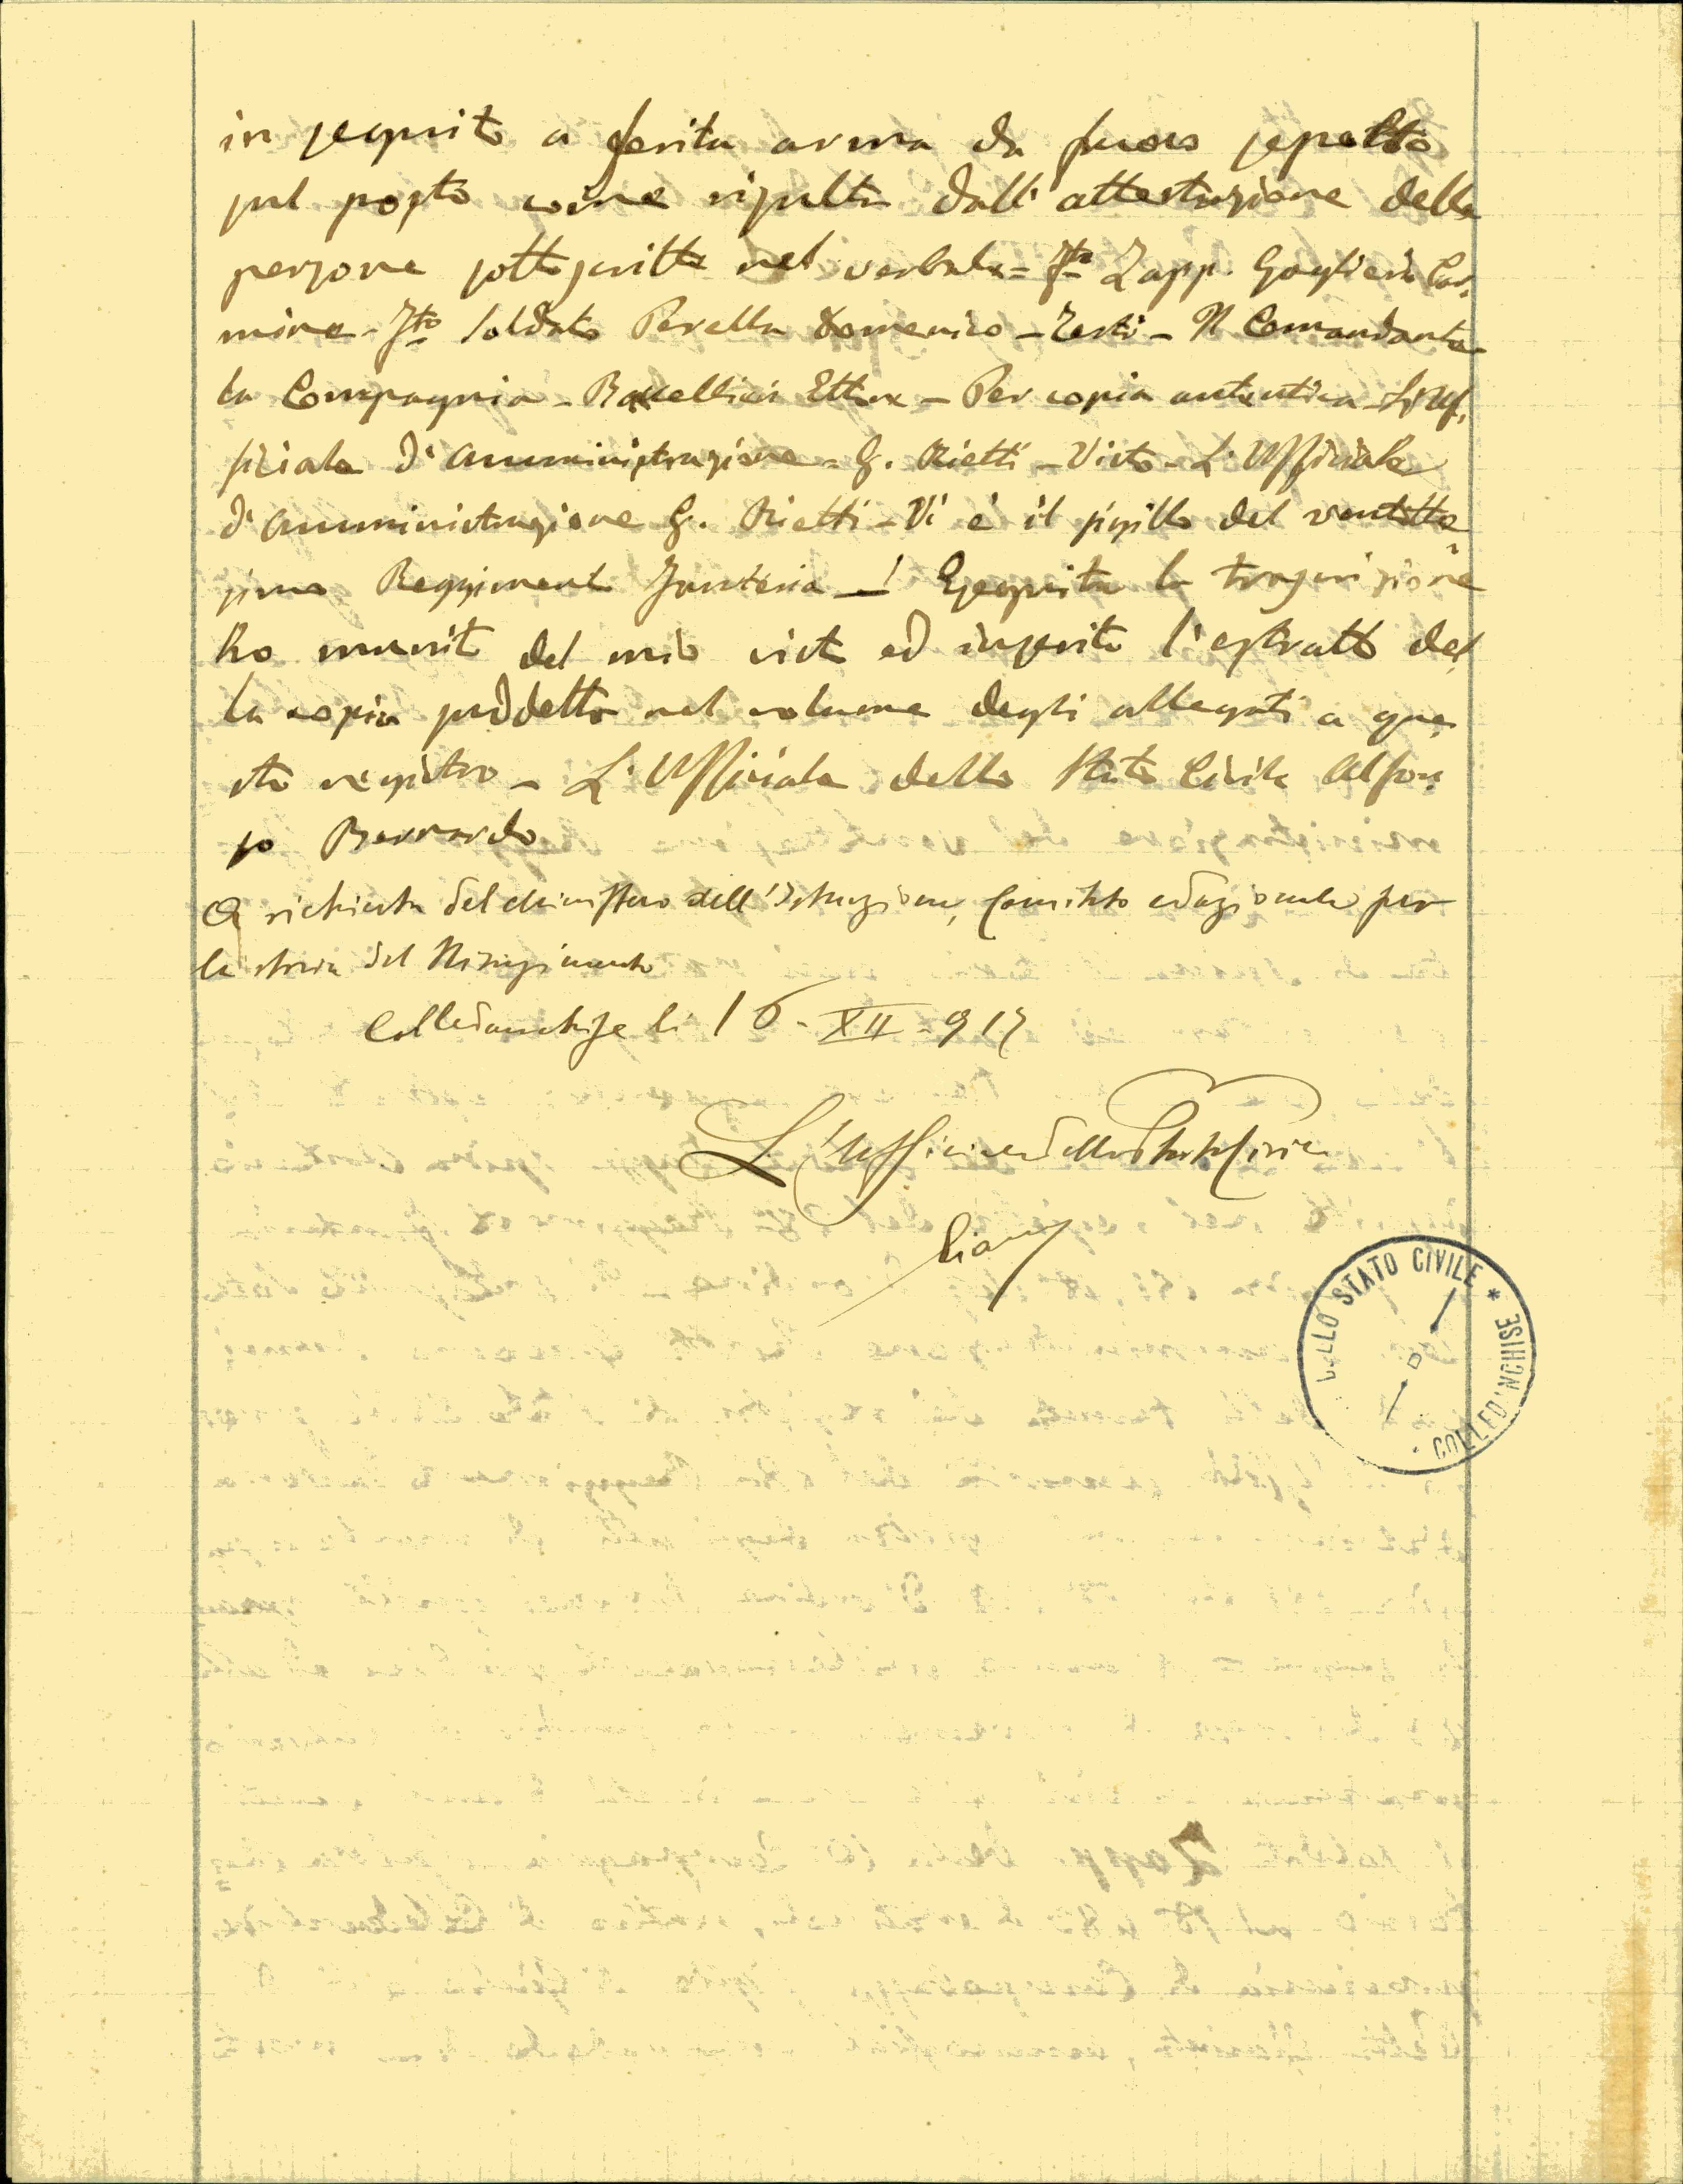 in seguito a ferita arma da fuoco sepolto
sul posto come risulta dall'attestazione delle
persone sottoscritte nel verbale - Fto Zapp. Gaglieri Car-
mine - Fto Soldato Perella Domenico - Testi - Il Comandante
la Compagnia - Ettore - Per copia autentica - L'Uf-
ficiale d'Amministrazione - G. Rietti - Visto - L'Ufficiale
d'Amministrazione G. Rietti - Vi è il sigillo del ventotte
simo Reggimento Fanteria - Eseguita la trascrizione
ho munito del mio visto ed inserito l'estratto del
la copia suddetta nel volume degli allegati a que
sto registro - L'Ufficiale dello Stato Civile Alfon
so Bernardo
A richiesta del Ministero dell'Istruzione, Comitato nazionale per
la storia del Risorgimento
Colledanchise li 16 - XII - 917
L'Ufficiale dello Stato Civile
STATO CIVILE * COLLED'NCHISE